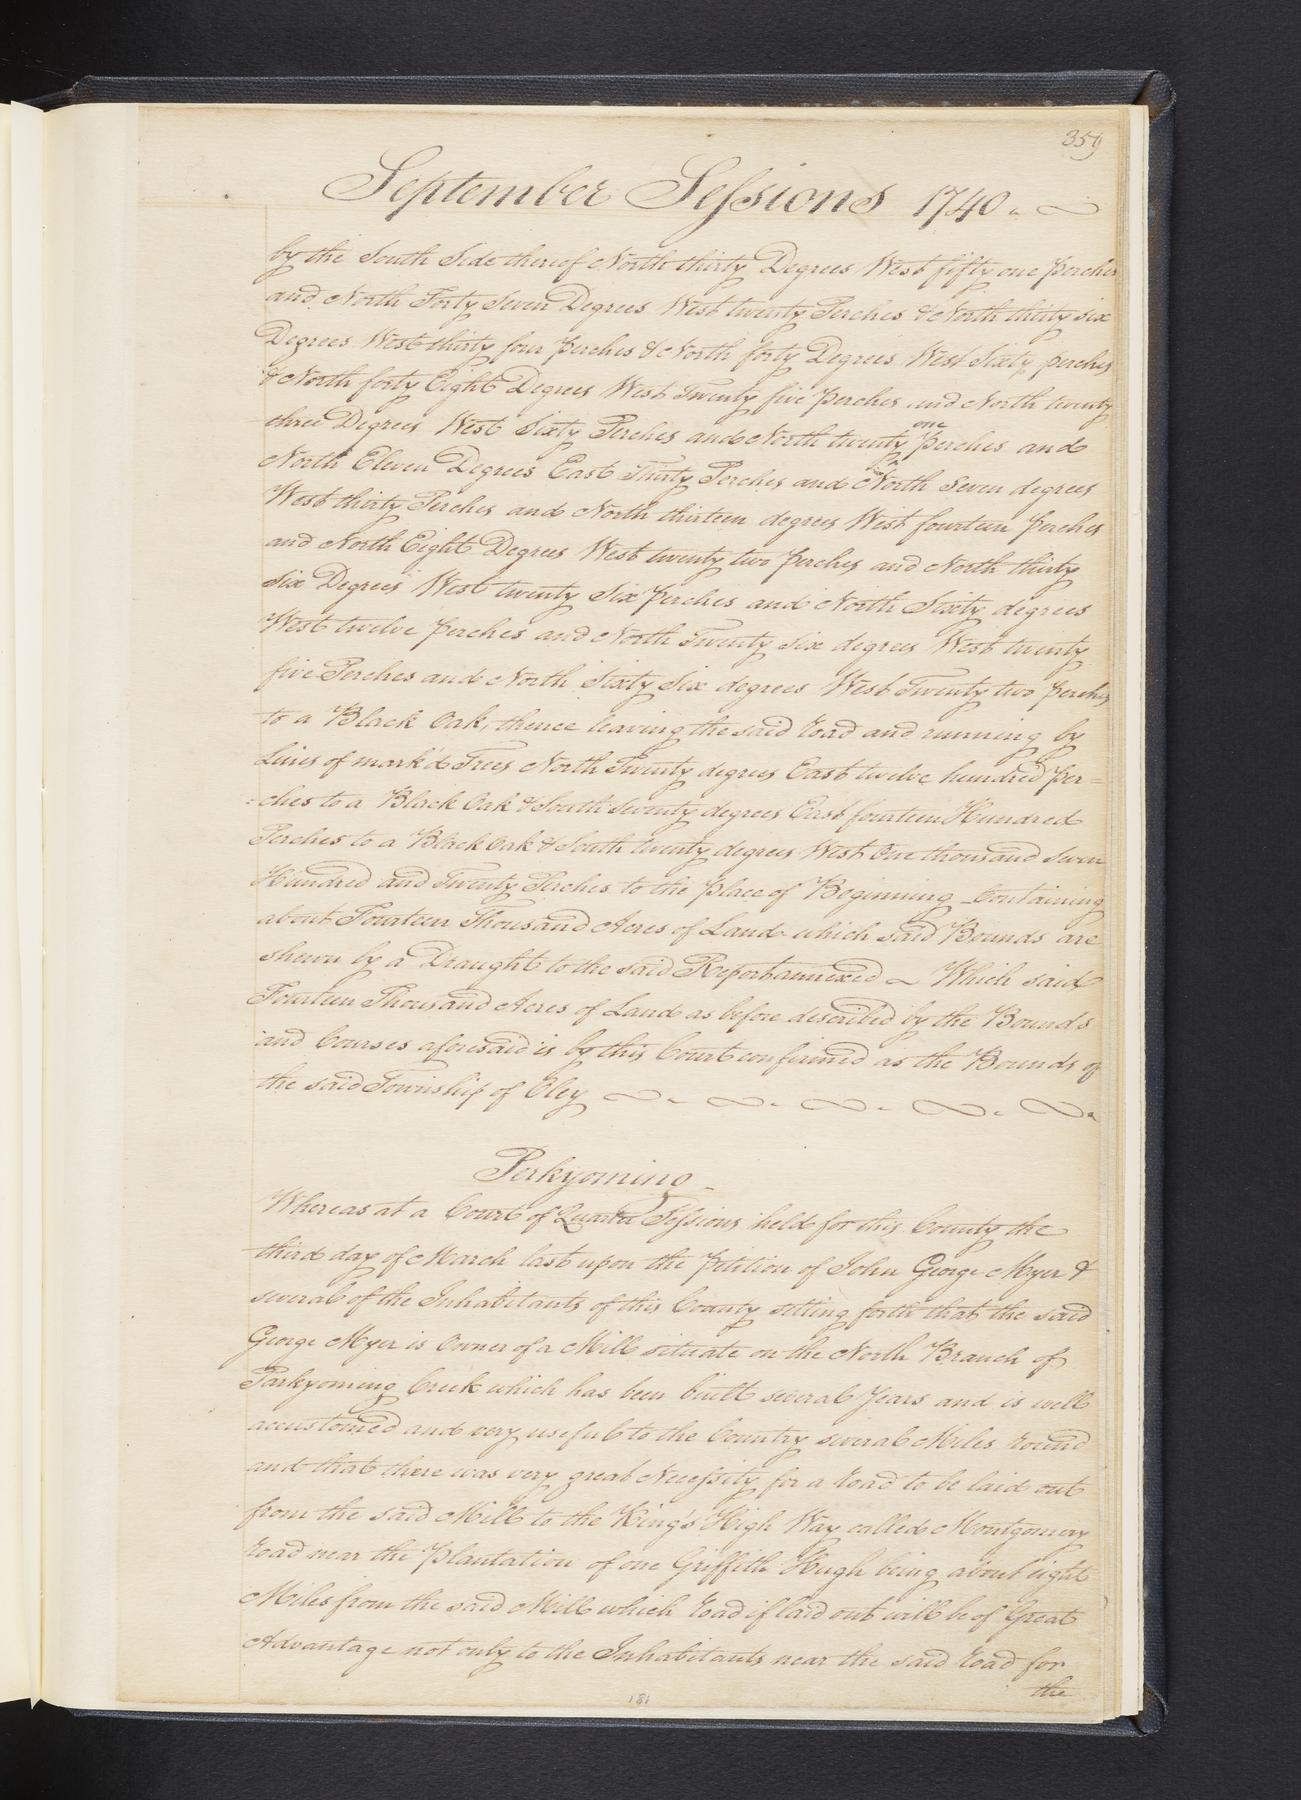 359
September Sessions 1740
by the South Side thereof North thirty Degrees West fifty one perches
and North Forty Seven Degrees West twenty Perches & North thirty six
Degrees West thirty four perches & North forty Degrees West Sixty perches
& North forty Eight Degrees West Twenty five perches and North twenty
three Degrees West Sixty Perches and North twenty one perches and
North Eleven Degrees East Thirty Perches and North Seven degrees
West thirty Perches and North thirteen degrees West fourteen perches
and North Eight Degrees West twenty two perches and North thirty
Six Degrees West twenty Six perches and North Sixty degrees
West twelve perches and North Twenty six degrees West twenty
five Perches and North Sixty Six degrees West Twenty two perches
to a Black Oak, thence leaving the said Road and running by
Lines of mark'd Trees North Twenty degrees East twelve hundred per=
=ches to a Black Oak & South Seventy degrees East fourteen Hundred
Perches to a Black Oak & South twenty degrees West One thousand Seven
Hundred and Twenty Perches to the place of Beginning Containing
about Fourteen Thousand Acres of Land which said Bounds are
shewn by a Draught to the said Report annexed ~ Which said
Fourteen Thousand Acres of Land as before described by the Bounds
and Courses aforesaid is by this Court confirmed as the Bounds of
the said Township of Oley
Perkyoming
Whereas at a Court of Quarter Sessions held for this County the
third day of March last upon the petition of John George Myer &
several of the Inhabitants of this County setting forth that the said
George Myer is Owner of a Mill situate on the North Branch of
Parkyoming Creek which has been built several years and is well
accustomed and very useful to the Country several Miles round
and that there was very great Necessity for a road to be laid out
from the said Mill to the King's High Way called Montgomery
road near the plantation of one Griffith Hugh being about eight
Miles from the said Mill which road if laid out will be of Great
Advantage not only to the Inhabitants near the said road for
the
181